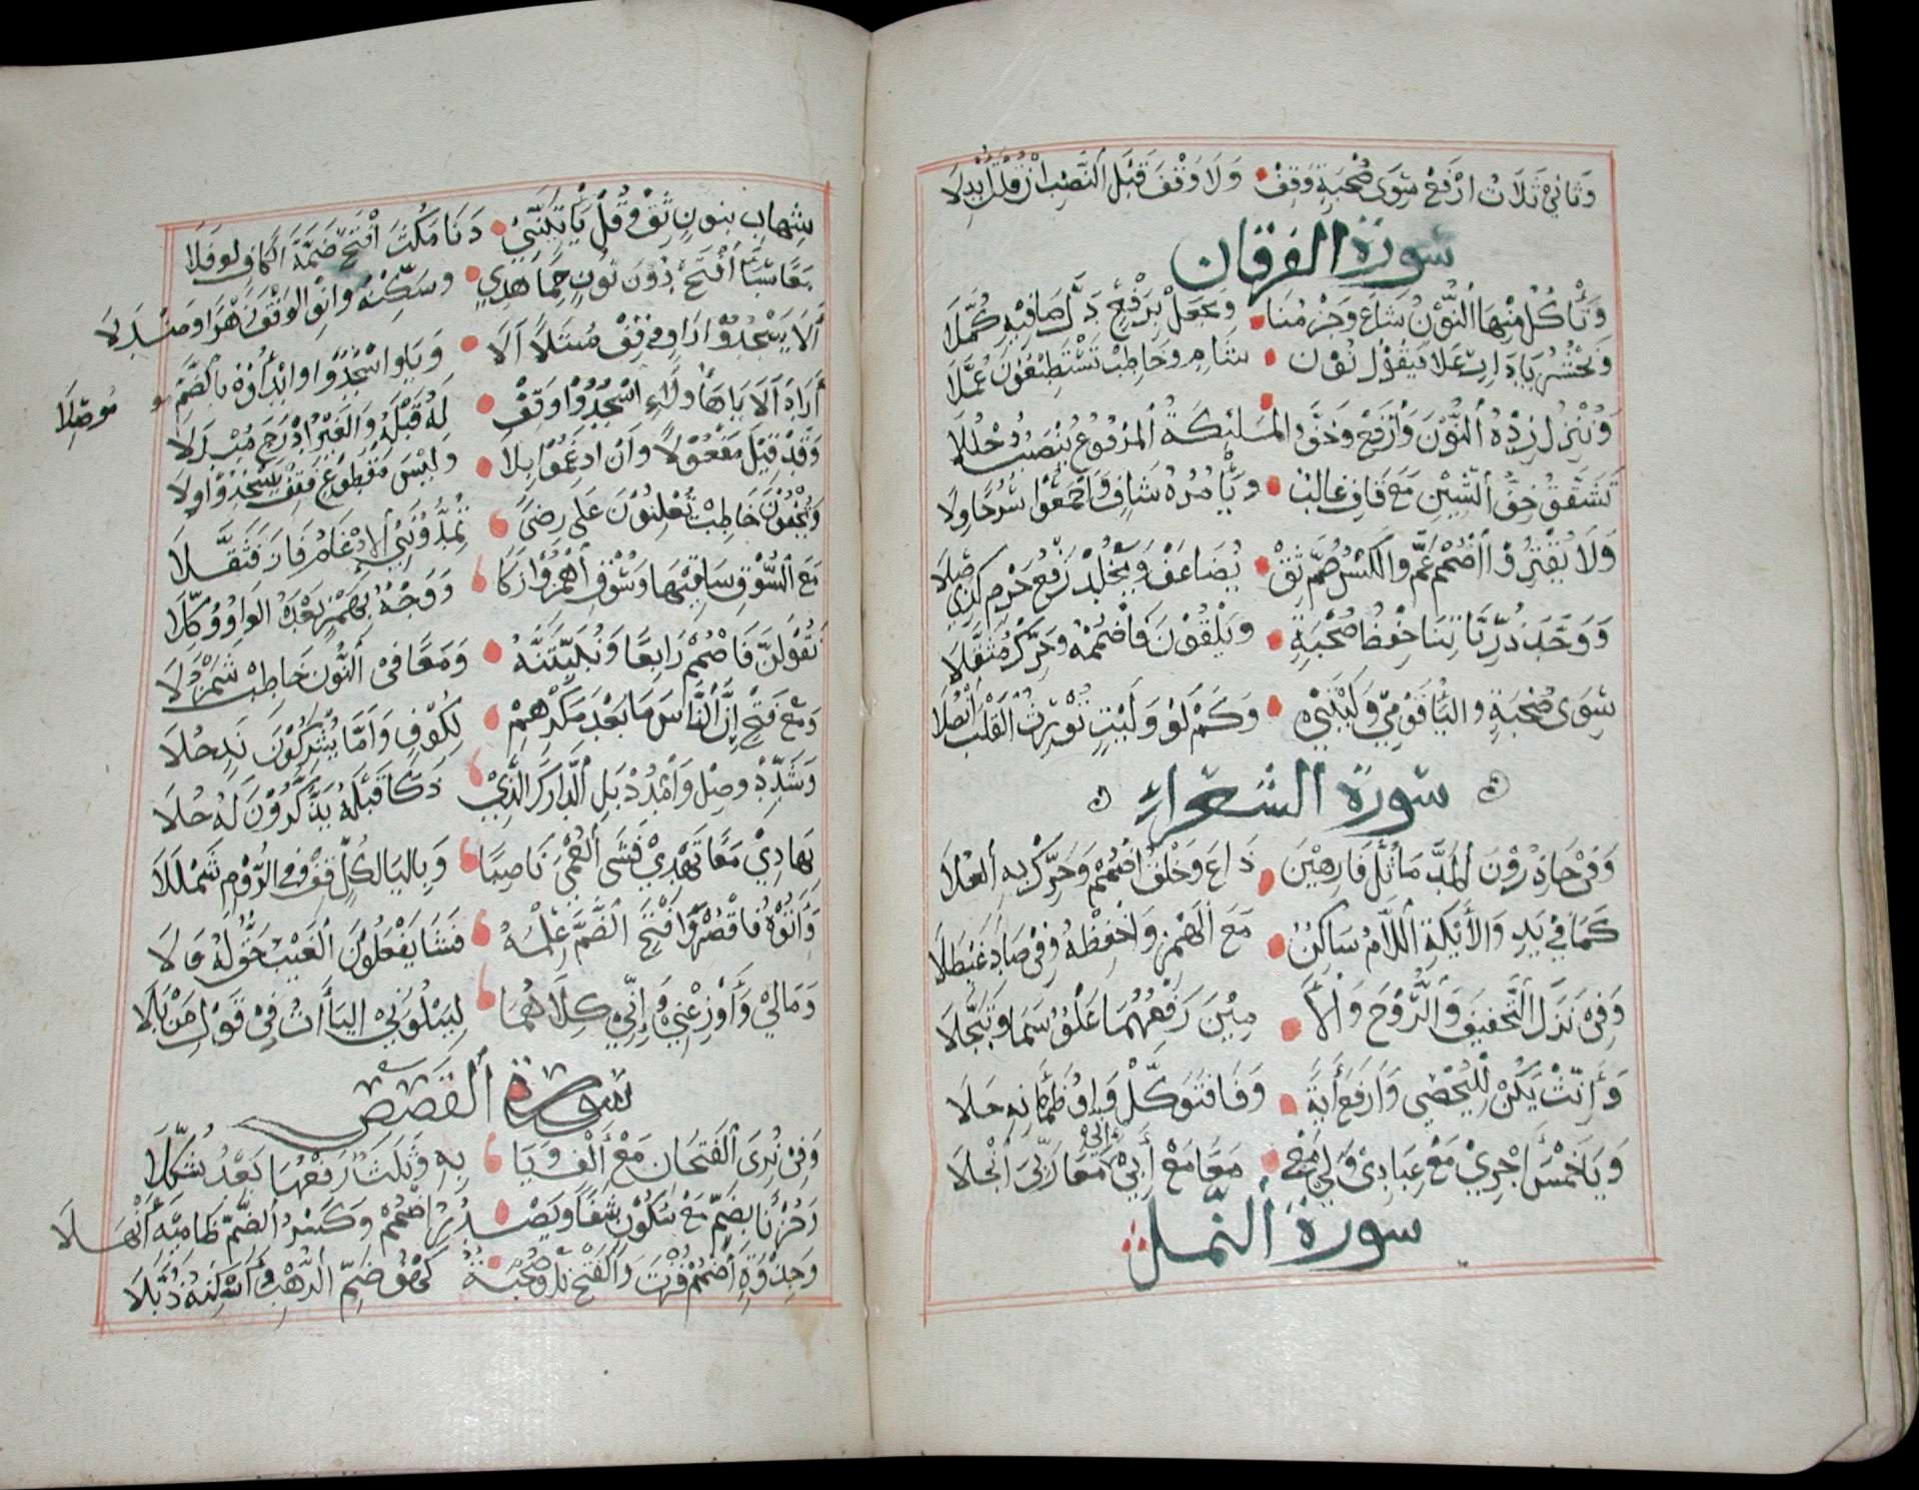 وَثَانِيْ ثَلَاثُ ارْفَعْ سِوَى صُحْبَةٍ وَقِفْ وَلَا وَقْفَ قَبْلَ النَّصْبِ اِنْ قُلْتَ اُبْدِلَا
سورة الفرقان
وَنَأْكُلُ مِنْهَا النُّوْنُ شَاعَ وَجَزْمُنَا وَيَجْعَلْ بِرَفْعٍ دَلَّ صَافِيْهِ كُمَّلَا
وَنَحْشُرُ يَا دَارٍ عَلَا فَيَقُوْلُ نُوْنُ شَامٍ وَخَاطِبْ تَسْتَطِيْعُوْنَ عُمَّلَا
وَنُنْزِلُ زِدْهُ النُّوْنَ وَارْفَعْ وَخِفَّ وَالْمَلٰئِكَةُ الْمَرْفُوْعُ يُنْصَبُ دُخْلُلَا
تَشَقَّقُ خِفُّ الشِّيْنِ مَعَ قَافِ غَالِبٌ وَيَأْمُرُهُ شَافٍ وَاجْمَعُوْا سُرُجًا وِلَا
وَلَا يَقْتِرُوْا اضْمُمْ عَمَّ وَالْكَسْرُ ضُمَّ ثِقْ يُضَاعَفْ وَيَخْلُدْ رَفْعُ جَزْمٍ كَذِي صِلَا
وَوَحَّدَ ذُرِّيَّاتِنَا حِفْظُ صُحْبَةٍ وَيَلْقَوْنَ فَاضْمُمْهُ وَحَرِّكْ مُثَقَّلَا
سِوَى صُحْبَةٍ وَالْيَاءُ قَوْمِيْ وَلَيْتَنِيْ وَكَمْ لَوْ وَلَيْتٍ تُوْرِثُ الْقَلْبَ اَنْصُلَا
سورة الشعراء
وَفِيْ حَاذِرُوْنَ الْمَدُّ مَا ثُلَّ فَارِهِيْنَ ذَاعَ وَخَلْقُ اضْمُمْ وَحَرِّكْ بِهِ الْعُلَا
كَمَا فِيْ نَدٍ وَالْأَيْكَةِ اللَّامُ سَاكِنٌ مَعَ الْهَمْزِ وَاخْفِضْهُ وَفِيْ صَادَ غَيْطَلَا
وَفِيْ نَزَّلَ التَّخْفِيْفُ وَالرُّوْحُ وَالْأَ مِيْنُ رَفْعُهُمَا عُلْوٌ سَمَا وَتَبَجَّلَا
وَأَنِّثْ يَكُنْ لِلْيَحْصَبِي وَارْفَعْ أٰيَةً وَفَا فَتَوَكَّلْ وَاوُ ظَمْاٰنِهِ حَلَا
وَيَا خَمْسَ اَجْرِيْ مَعَ عِبَادِيْ وَلِيْ مَعِيْ مَعًا مَعْ أَبِيْ اِنِّيْ مَعًا رَبِّيَ انْجَلَا
سورة النمل
شِهَابٍ بِنُوْنٍ ثِقْ وَقُلْ يَأْتِيَنَّنِيْ دَنَا مَكُثَ افْتَحْ ضَمَّةَ الْكَافِ نَوْفَلَا
مَعًا سَبَأَ افْتَحْ دُوْنَ نُوْنٍ حِمًا هُدًى وَسَكِّنْهُ وَانْوِ الْوَقْفَ زُهْرًا وَمَنْدَلَا
أَلَا يَسْجُدُوْا رَاوٍ وَقِفْ مُبْتَلًا اَلَا وَيَا وَاسْجُدُوْا وَابْدَأْهُ بِالضَّمِّ مُوْصِلَا
أَرَادَ اَلَا يَا هٰؤُلَاءِ اسْجُدُوْا وَقِفْ لَهُ قَبْلَهُ وَالْغَيْرُ اَدْرَجَ مُبْدِلَا
وَقَدْ قِيْلَ مَفْعُوْلًا وَاَنْ اَدْغَمُوْا بِلَا وَلَيْسَ مَقْطُوْعٍ فَقِفْ يَسْجُدُوْا وِلَا
وَيُخْفُوْنَ خَاطِبْ تُعْلِنُوْنَ عَلَى رِضًى تُمِدُّوْنَنِي الْاِدْغَامُ فَازَ فَثَقَّلَا
مَعَ السُّوْقِ سَاقَيْهَا وَسُوْقِ اهْمِزُوْا زَكَا وَوَجْهٌ بِهَمْزٍ بَعْدَهُ الْوَاوُ وُكِّلَا
تَقُوْلَنَّ فَاضْمُمْ رَابِعًا وَنُبَيِّتَنَّهُ وَمَعًا فِي النُّوْنِ خَاطِبْ شَمَرْدَلَا
وَمَعْ فَتْحِ اِنَّ النَّاسَ مَا بَعْدَ مَكْرِهِمْ لِكُوْفٍ وَاَمَّا يُشْرِكُوْنَ نَدٍ حَلَا
وَشَدِّدْ وَصِلْ وَامْدُدْ بَلِ ادَّارَكَ الَّذِيْ ذَكَا قَبْلَهُ يَذَّكَّرُوْنَ لَهُ حُلَا
بِهَادِيْ مَعًا تَهْدِيْ فَشَى الْعُمْيَ نَاصِبًا وَبِالْيَا لِكُلٍّ قِفْ وَفِي الرُّوْمِ شَمْلَلَا
وَأٰتُوْهُ فَاقْصُرْ وَافْتَحِ الضَّمَّ عِلْمُهُ فَشَا يَفْعَلُوْنَ الْغَيْبُ حَقٌّ لَهُ وَلَا
وَمَالِيْ وَأَوْزِعْنِيْ وَاِنِّيْ كِلَاهُمَا لِيَبْلُوَنِيْ الْيَاآتُ فِيْ قَوْلِ مَنْ بَلَا
سورة القصص
وَفِيْ نُرِيَ الْفَتْحَانِ مَعْ أَلِفٍ وَيَا ئِهِ وَثَلٰثٌ رَفْعُهَا بَعْدُ شُكِّلَا
وَحُزْنًا بِضَمٍّ مَعْ سُكُوْنٍ شَفَا وَيَصْدُرَ اضْمُمْ وَكَسْرُ الضَّمِّ ظَامِيْهِ أَنْهَلَا
وَجِذْوَةٍ اضْمُمْ فُزْتَ وَالْفَتْحَ نَلْ وَصُحْبَةٌ كَهْفُ ضَمِّ الرَّهْبِ وَاَسْكِنْهُ ذُبَّلَا